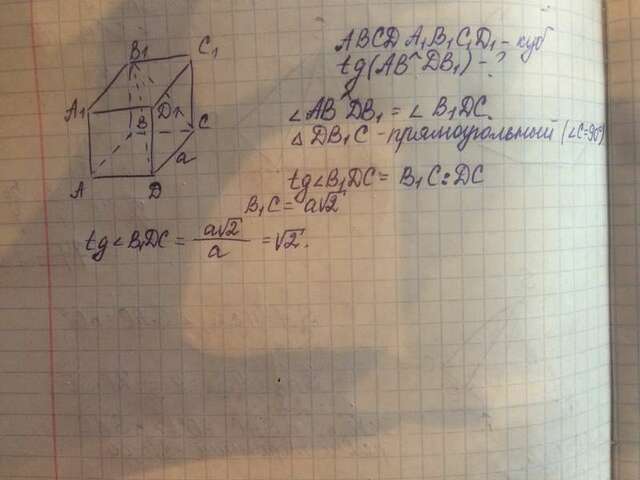 B₁
C₁
A₁
D₁
B
C
a
A
D
ABCD A₁B₁C₁D₁ - куб
tg(AB^DB₁) - ?
∠AB^DB₁ = ∠B₁DC.
△DB₁C - прямоугольный (∠C=90°)
tg∠B₁DC = B₁C : DC
B₁C = a√2
tg∠B₁DC = a√2/a = √2.